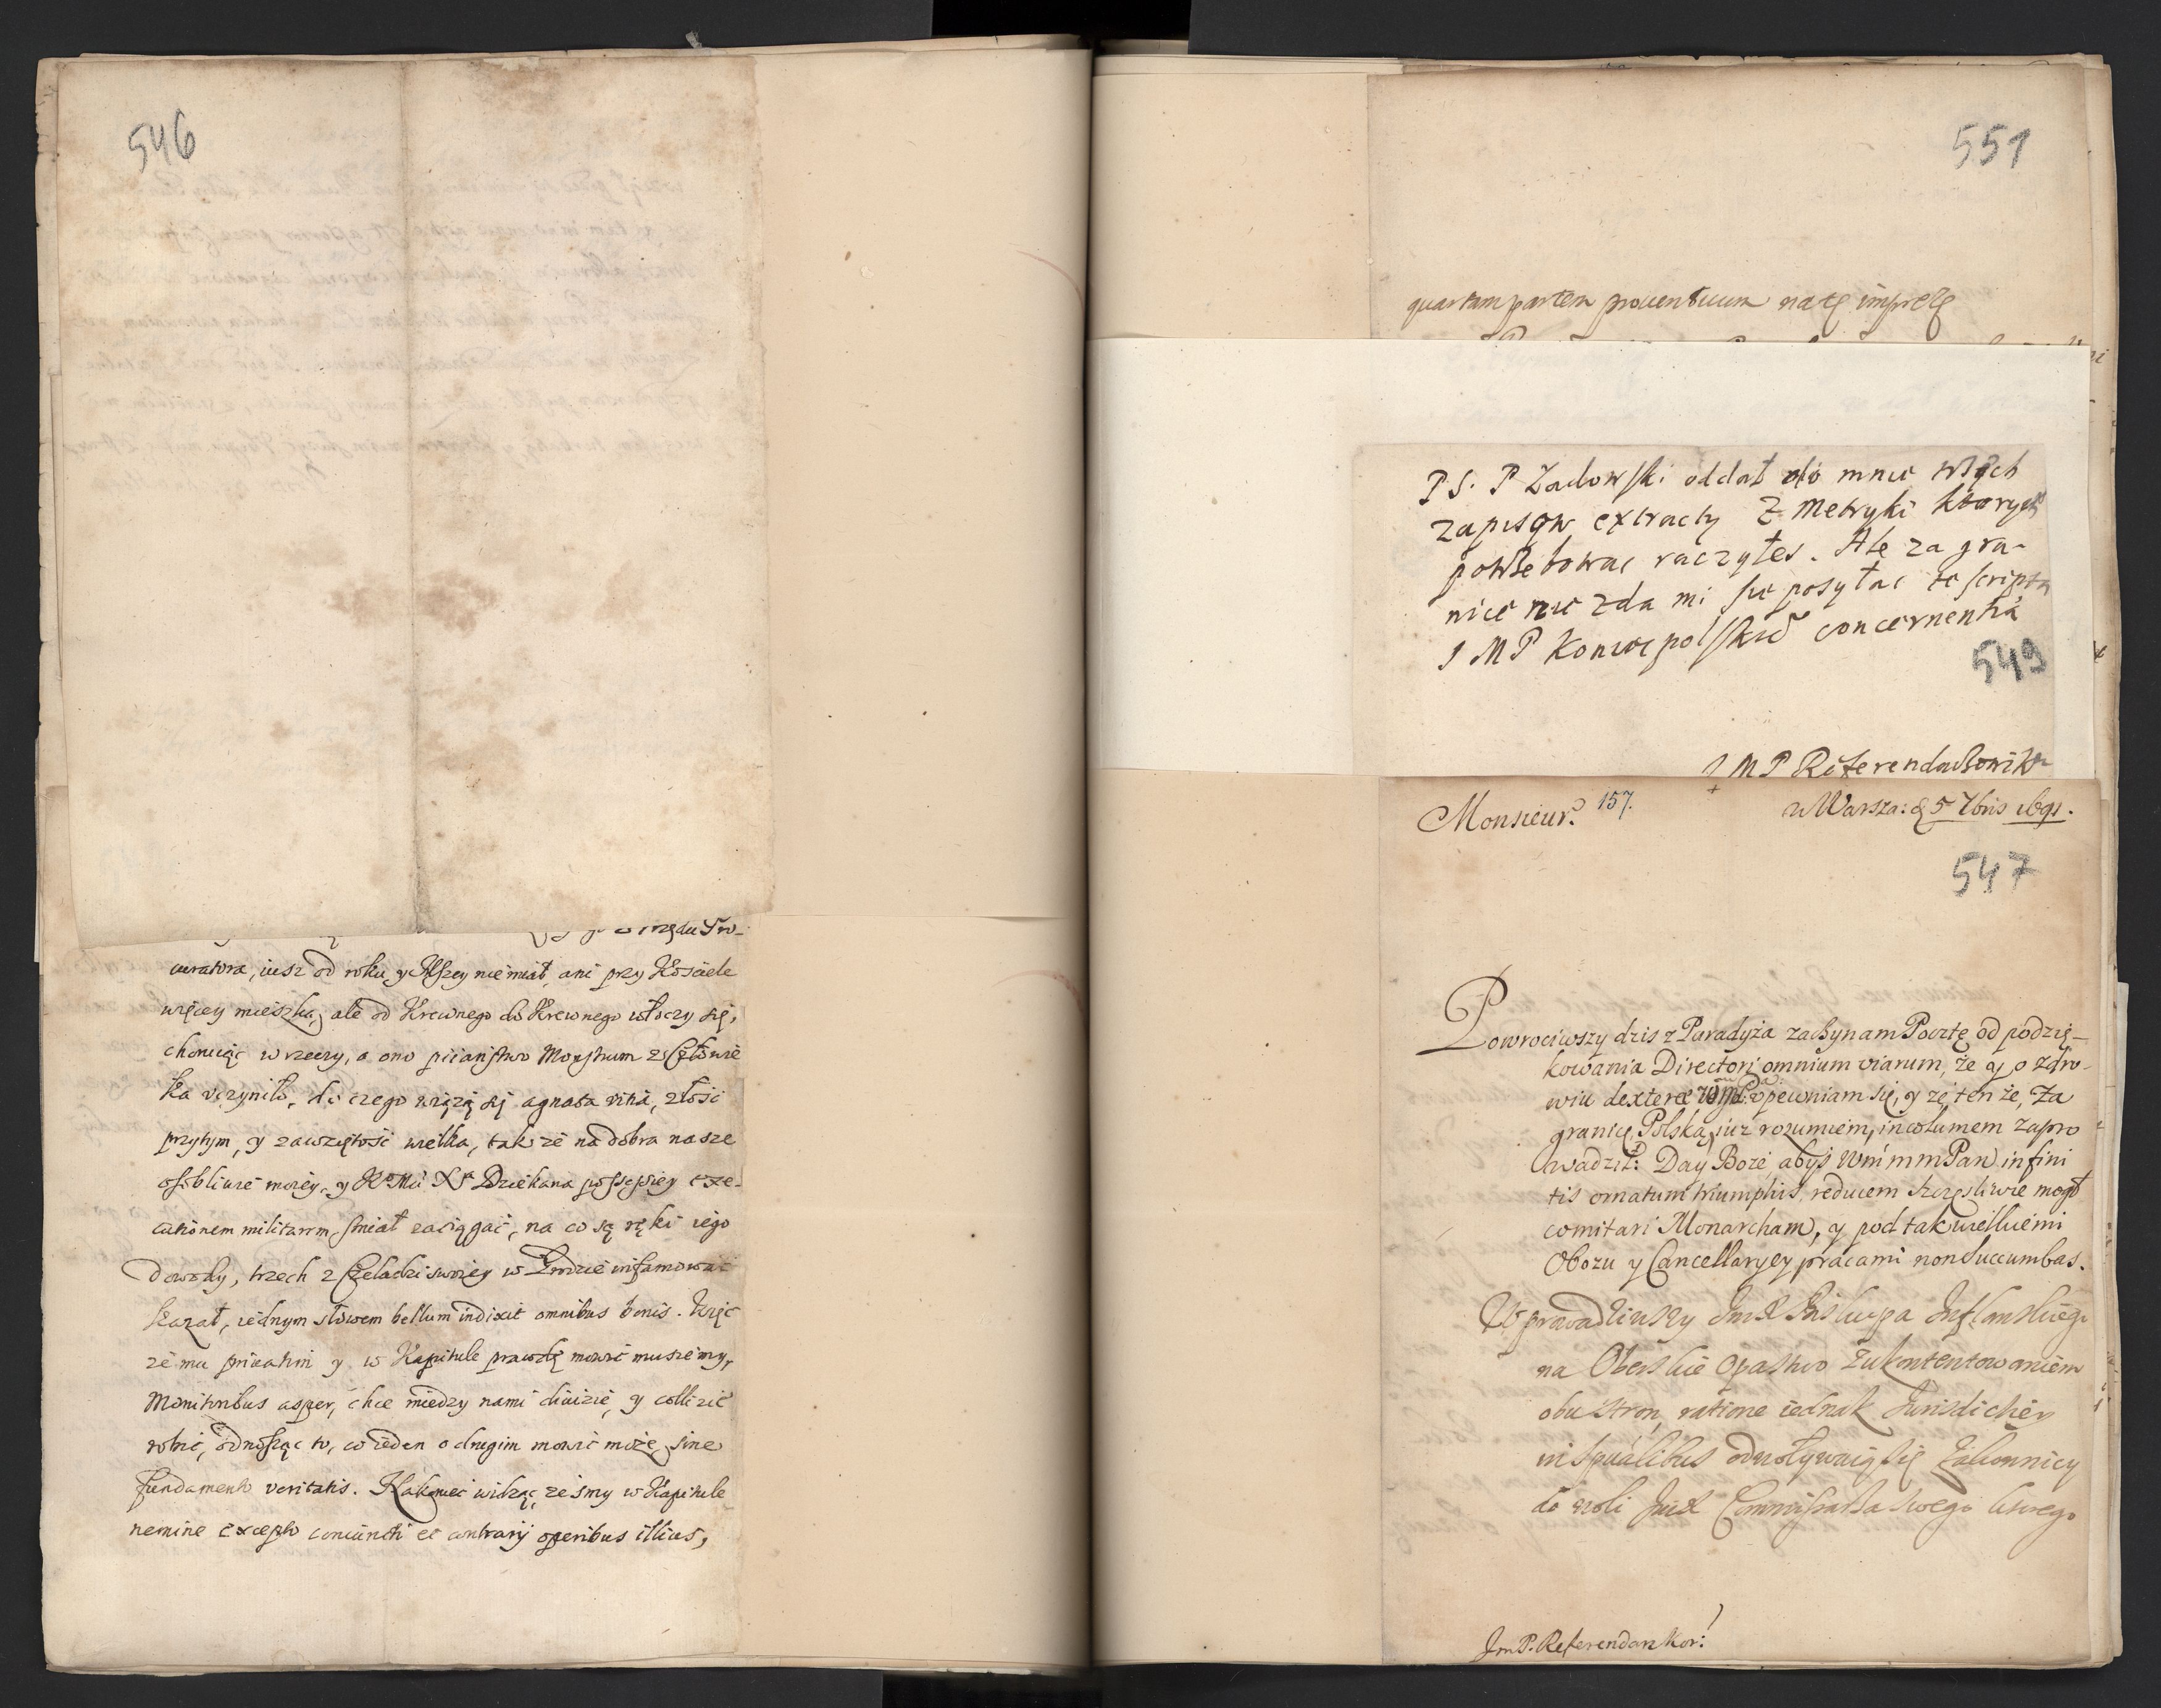 546
curatora, iusz od roku y Mszey nie miał, ani przy Kosciele
więcey mieszka, ale od Krewnego do Krewnego włoczy się,
choruiąc w rzeczy, a ono piianstwo Monstrum z Człowie
ka vczyniło, do czego wiążą się agnata vitia, złosc
przytym, y zawziętosc wielka, tak ze na dobra nasze
osobliwie moiey, y Dziekana possessiey exe-
cutionem militarem smiał zaciągac, na co są ręki iego
dowody, trzech z Czeladzi swoiey w Grodzie infamowac
kazał, iednym słowem bellum indixit omnibus bonis. Więc
ze mu priuatim y w Kapitule prawdę mowic muszemy,
Monitoribus asper, chce miedzy nami diuizie, y collizie
robic, odnosząc to, co ieden o drugim mowic może, sine
fundamento veritatis. Nakoniec widząc, ze smy w Kapitule
nemine excepto coniuncti et contrarij operibus illius,
551
quartam partem prouentuum na tę imprezę
PS. P Zadowski oddał do mnie wszech
zapisow extracty z Metryki ktorych
potrzebowac raczyłes. Ale za gra-
nice nie zda mi się posyłac te scripta
J M P Koniecpolskie concernentia
549
J M P Referendarzowi Kor
Monsieur. 157. z Warsza: d 5 7bris 1691.
547
Powrociwszy dzis z Paradyża zaczynam Pocztę od podzię-
kowania Directori omnium viarum, że y o zdro-
wiu dexterae vpewniam się, y że ten że, za
granicę Polską, iuż rozumiem, incolumem zapro
wadził: Day Boże, abyś Wm mm Pan infini
tis ornatum triumphis, reducem szczęsliwie mogł
comitari Monarcham, y pod tak wielkiemi
Obozu y Cancellaryey pracami non succumbas.
Wprowadziwszy Jmx Biskupa Inflanskiego
na Oberskie Opastwo z ukontentowaniem
obu stron, ratione iednak Jurisdictiey
in spualibus odwoływaią się Zakonnicy
do woli Jmx Commissarza swego
Jm P. Referendarz Kor: